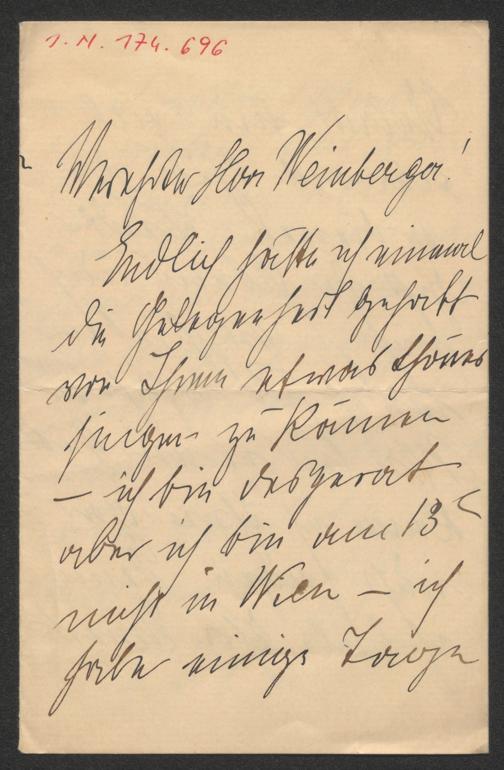 I. N. 174.696
Verehrter Herr Weinberger!
Endlich hätte ich einmal
die Gelegenheit gehabt
von Ihnen etwas schönes
singen zu können
– ich bin desperat
aber ich bin am 13t
nicht in Wien – ich
habe einige Tage